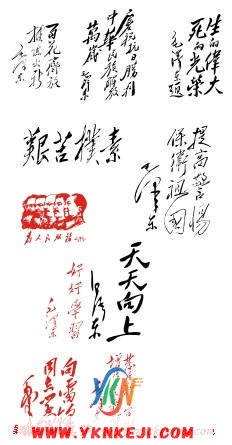 生的伟大
死的光荣
毛泽东题
庆祝抗日胜利
中华民族解放
万岁
毛泽东
百花齐放
推陈出新
毛泽东
艰苐朴素
提高警惕
保卫祖国
毛泽东
为人民服务
天天向上
好好学习
毛泽东
向雷锋
同志学习
YKN
WWW.YKNKEJI.COM